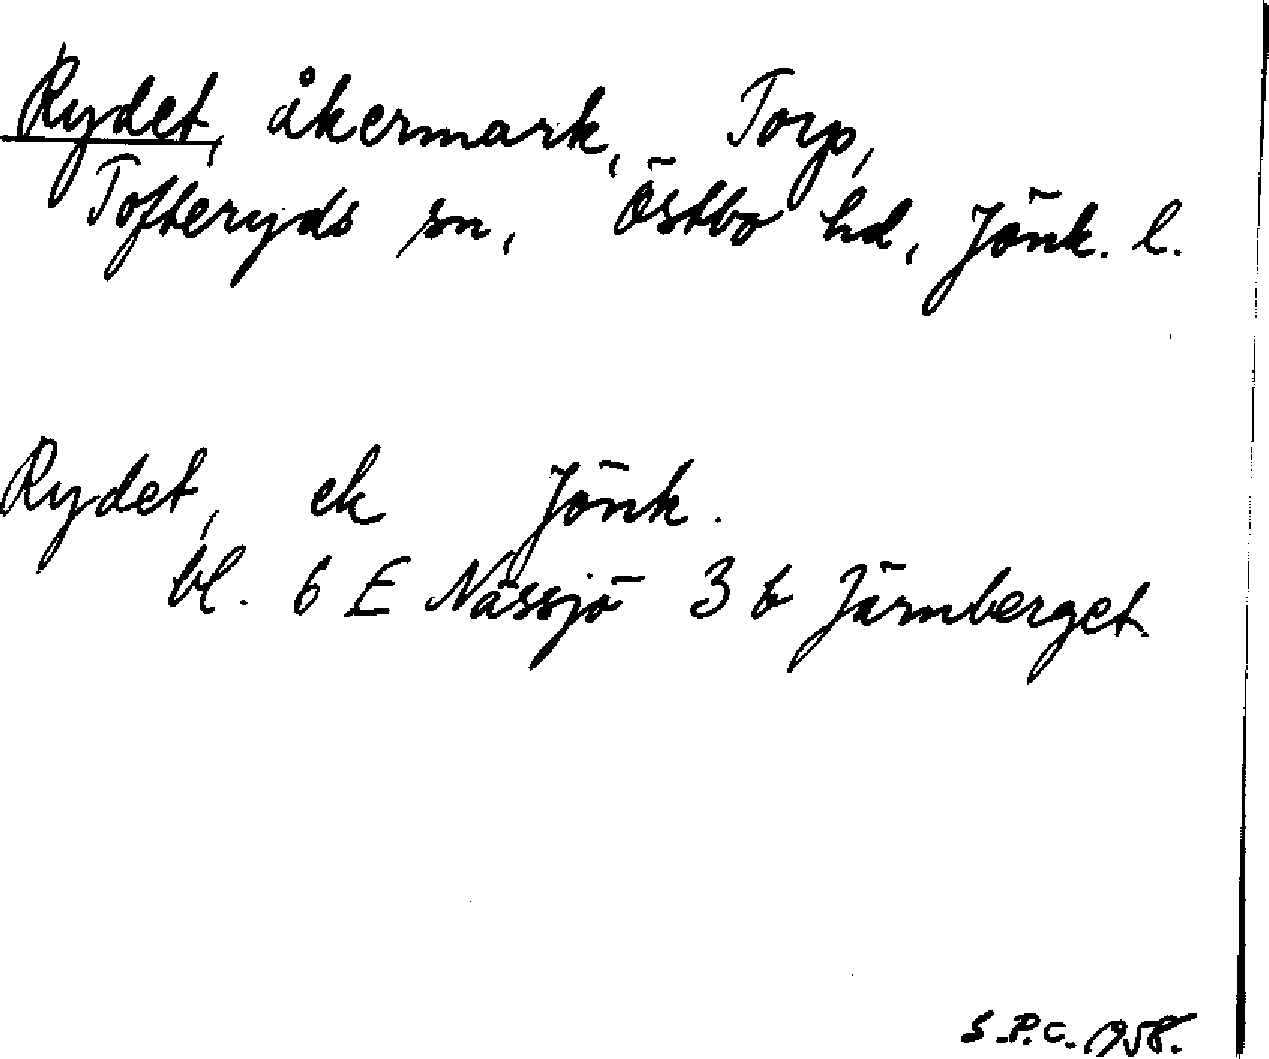 Rydet, åkermark, Torp,
Tofteryds sn, Östbo hd, Jönk. l.
Rydet, ek Jönk.
bl. 6 E Nässjö 3 b Järnberget.
S.P.C. 1958.